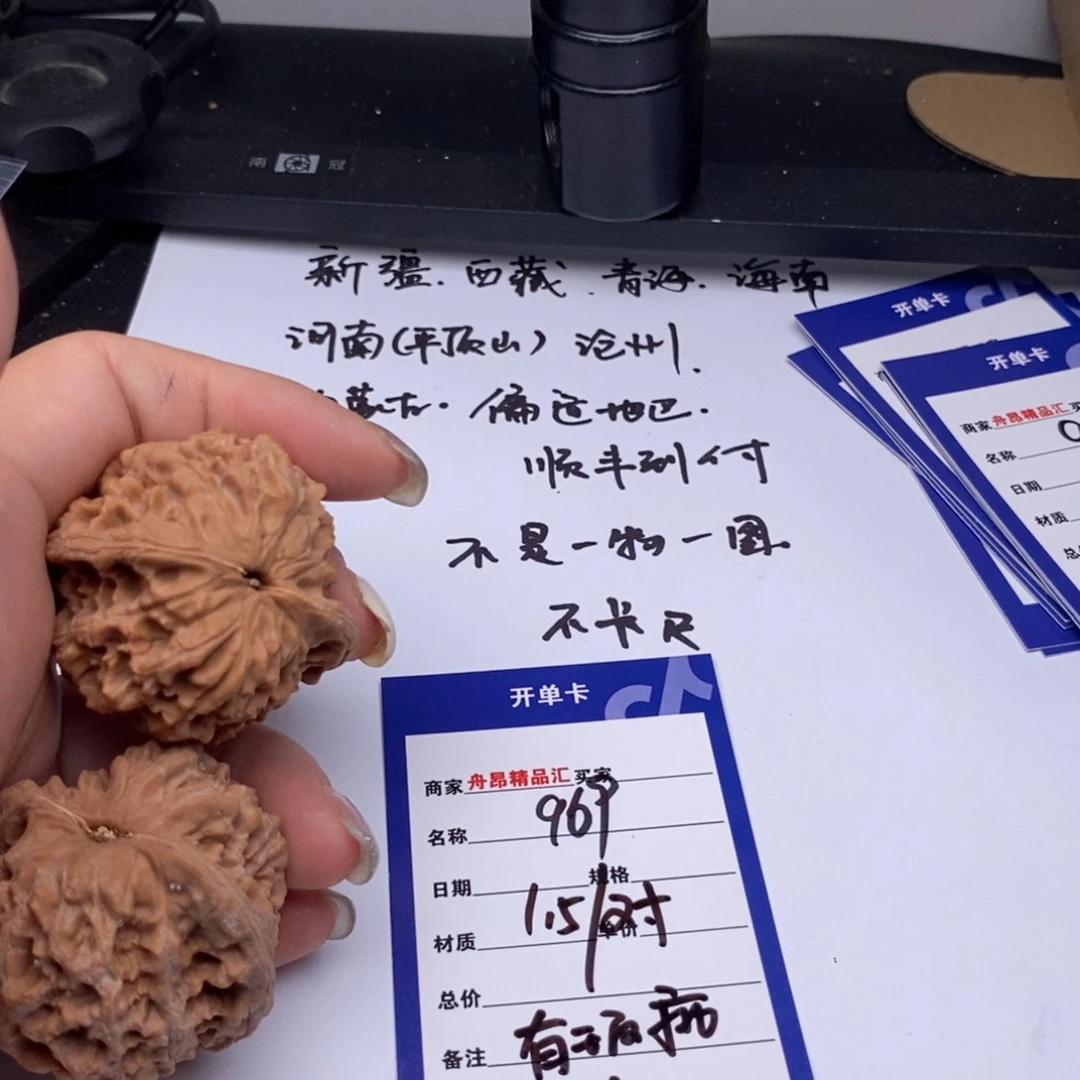 南 冠
新疆.西藏.青海.海南
河南(平顶山) 沧州.
蒙古.偏远地区.
顺丰到付
不是一物一图.
不卡尺
开单卡
商家舟昂精品汇买家
969
名称
日期 规格
1.5/对
材质 单价
总价
备注
开单卡
开单卡
商家舟昂精品汇买
名称
日期
材质